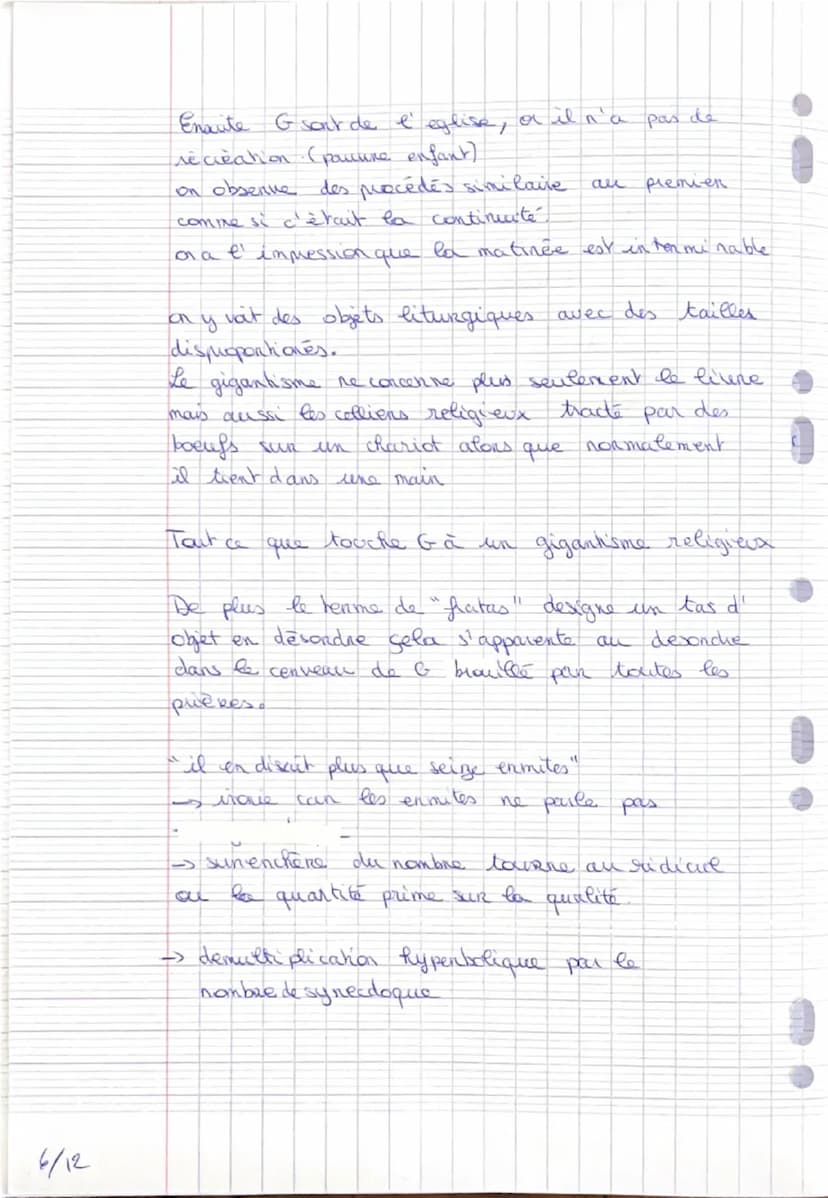 Ensuite G sort de l'eglise, or il n'a pas de
récréation. (pauvre enfant)
on observe des procédés similaire au premier
comme si c'était la continuité.
on a l'impression que la matinée est interminable
on y voit des objets liturgiques avec des tailles
disproportionés.
Le gigantisme ne concerne plus seulement le livre
mais aussi les colliers religieux tracté par des
boeufs sur un chariot alors que normalement
il tient dans une main
Tout ce que touche G à un gigantisme religieux
De plus le terme de "fratas" designe un tas d'
objet en désordre çela s'apparente au desordre
dans le cerveau de G brouillé par toutes les
prières.
"il en disait plus que seize ermites"
→ ironie car les ermites ne parle pas
→ surenchère du nombre tourne au ridicul
ou la quantité prime sur la qualité.
→ demultiplication hyperbolique par le
nombre de synecdoque
6/12